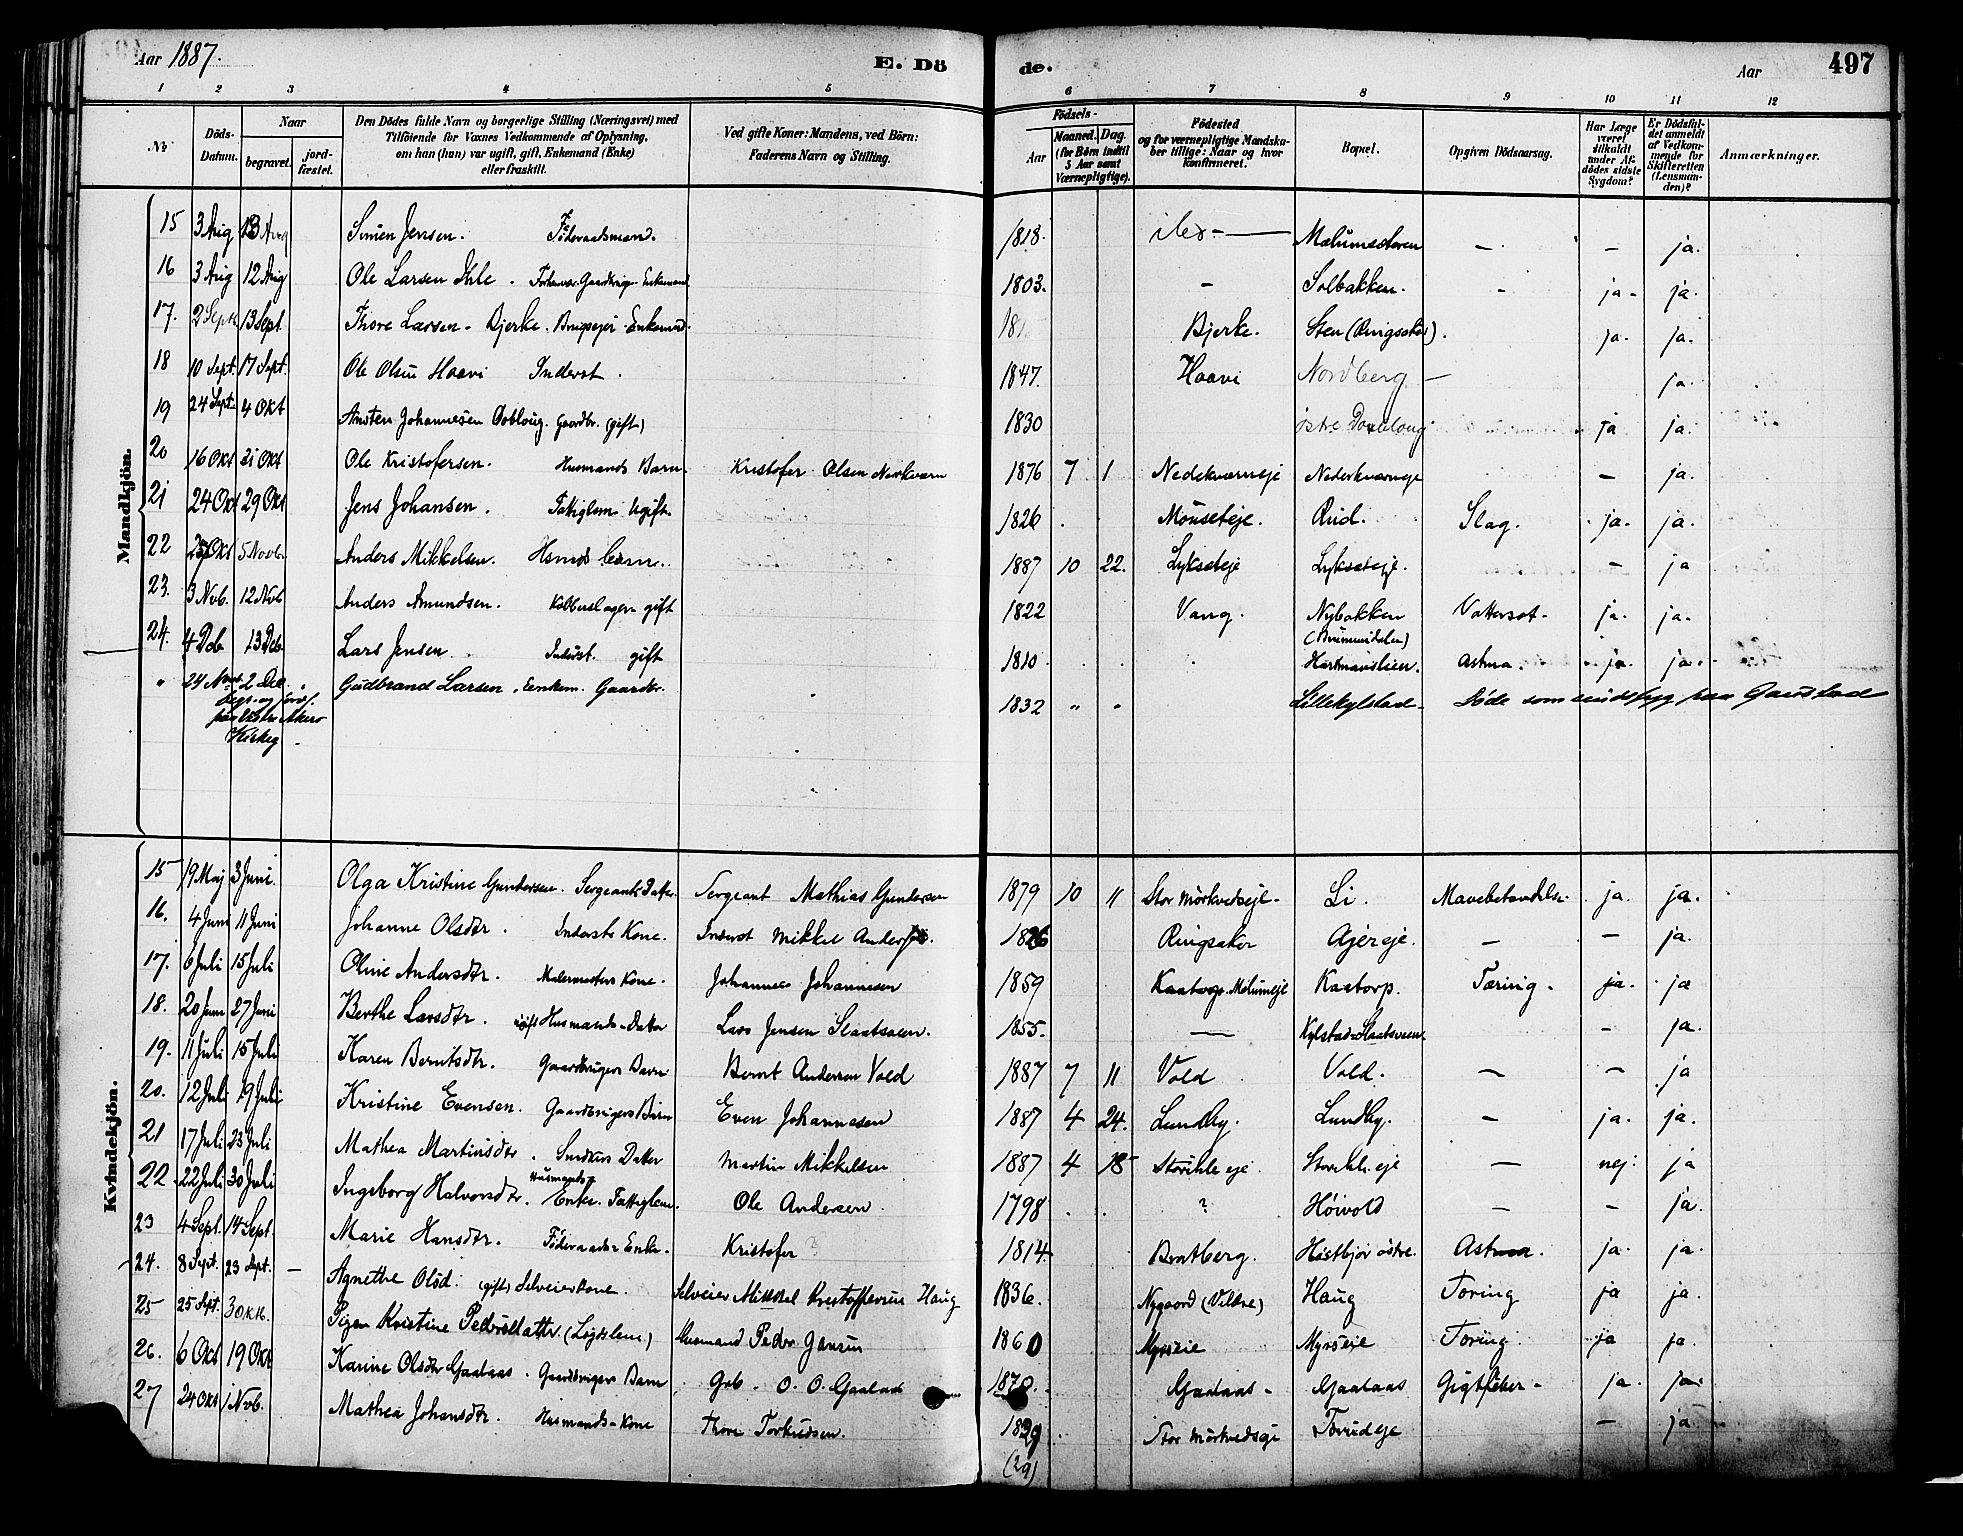 Aar 1887.
E. Döde.
Aar
497
1 2 3 4 5 6 7 8 9 10 11 12
No
Döds-Datum.
Naar
begravet.
jordfæstet.
Den Dödes fulde Navn og borgerlige Stilling (Næringsvei) med Tilföiende for Voxnes Vedkommende af Oplysning, om han (hun) var ugift, gift, Enkemand (Enke) eller fraskilt.
Ved gifte Koner: Mandens, ved Börn: Faderens Navn og Stilling.
Födsels-
Aar
Maaned. Dag.
(for Börn indtil 5 Aar samt Værnepligtige).
Födested og for værnepligtige Mandskaber tillige: Naar og hvor konfirmeret.
Bopæl.
Opgiven Dödsaarsag.
Har Læge været tilkaldt under Afdödes sidste Sygdom?
Er Dödsfaldet anmeldt af Vedkommende for Skifteretten (Lensmanden)?
Anmærkninger.
Mandkjön.
15 3 Aug 13 Aug Simen Jensen. Föderaadsmand. 1818. Mælumsstuen — — ja.
16 3 Aug 12 Aug Ole Larsen Ihle. Forhenvær. Gaardbruger Enkemand 1803. — Solbakken. - ja - ja.
17. 2 Sept 13 Sept Thore Larsen - Bjerke. Brugseier Enkemd. 18 Bjerke. Sten (Ringsaker). ja. ja.
18 10 Sept. 17 Sept. Ole Olsen Haavi Inderst. 1847. Haavi Nordberg — ja.
19 24 Sept. 4 Okt Amsten Johannesen Dobloug. Gaardbr. (gift) 1830 östre Dobloug ja ja.
20 16 Okt 21 Okt Ole Kristofersen. Husmands Barn. Kristofer Olsen 1876 7 1 Nederkværneje — ja.
21 24 Okt 29 Okt Jens Johansen. Fattiglem Ugift. 1826 Rud. Slag. ja. ja.
22 25 Okt 5 Novb. Anders Mikkelsen. Husmds barn. 1887 10 22. Lykseteje Lykseteje. — ja
23. 3 Nvb. 12 Nvb Anders Amundsen. Kobberslager gift 1822 Vang. Nybakken (Brumundalen) Vattersot - ja. ja.
24. 4 Deb 13 Deb Lars Jensen. Inderst. gift 1810 Astma. ja. ja.
" 24 Novb. 2 Dec. Gudbrand Larsen. Enkem. Gaardbr. 1832 " " Lillekylstad - Döde som sindssyg paa Gaustad
begr. og jordf. paa Vestre Akers Kirkeg.
Kvindekjön.
15 19 Maj 3 Juni. Olga Kristine Gundersen. Sergeants Datter Sergeant Mathias Gundersen 1879 10 11 Stor Mörkvedseje - Li. Mavebetændelse. ja. ja.
16. 4 Juni 11 Juni Johanne Olsdtr. Indersts Kone. Inderst Mikkel Andersen. 1826 Ringsaker Ajereje. — — ja.
17. 6 Juli 15 Juli Oline Andersdtr. Malermesters Kone. Johannes Johannesen 1859 Kaatorp. Mælumeje Kaatorp. Tæring. ja. ja
18. 20 Juni 27 Juni Berthe Larsdtr. ugift Husmands-Datter Lars Jensen Slaatsveen. 1855. — Kylstad-Slaatsveen — ja.
19. 11 Juli 15 Juli Karen Berntsdtr. Gaardbrugers Barn Bernt Andersen Vold 1887 7 11 Vold Vold. — — ja
20. 12 Juli 19 Juli Kristine Evensen. Gaardbrugers Barn Even Johannesen 1887 4 24. Lundby. Lundby. — ja. ja.
21 17 Juli 23 Juli Mathea Martinsdtr. Smeds Datter Martin Mikkelsen 1887 4 18 Storihle eje. Storihle eje — nej. ja
22. 22 Juli 30 Juli Ingeborg Halvorsdtr. Husmands Enke. Fattiglem. Ole Andersen. 1798 ? Höivold — — ja.
23 4 Sept. 14 Sept. Marie Hansdtr. Föderaads Enke. Kristofer ? 1814 Bratberg. Hestbjör östre. Astma. ja. ja.
24. 8 Sept. 23 Sept. — Agnethe Olsd. (gift) Selveierkone. Selveier Mikkel Kristoffersen Haug 1836. Nygaard (Veldre) Haug Tæring ja ja.
25 25 Sept. 3 Oktb. Pigen Kristine Pedersdatter (Lægdslem) Husmand Peder Jensen 1860 Myrseie Myrseje Tæring. ja ja.
26. 6 Okt 19 Okt Karine Olsdtr Gaalaas. Gaardbrugers Barn Gab. O. O. Gaalaas 1870. Gaalaas - Gaalaas Gigtfeber - ja. ja.
27 24 Okt 1 Nvb. Mathea Johansdtr. Husmands-Kone Thore Torkildsen. 1829 (29) Stor Mörkvedseje Torudeje — ja